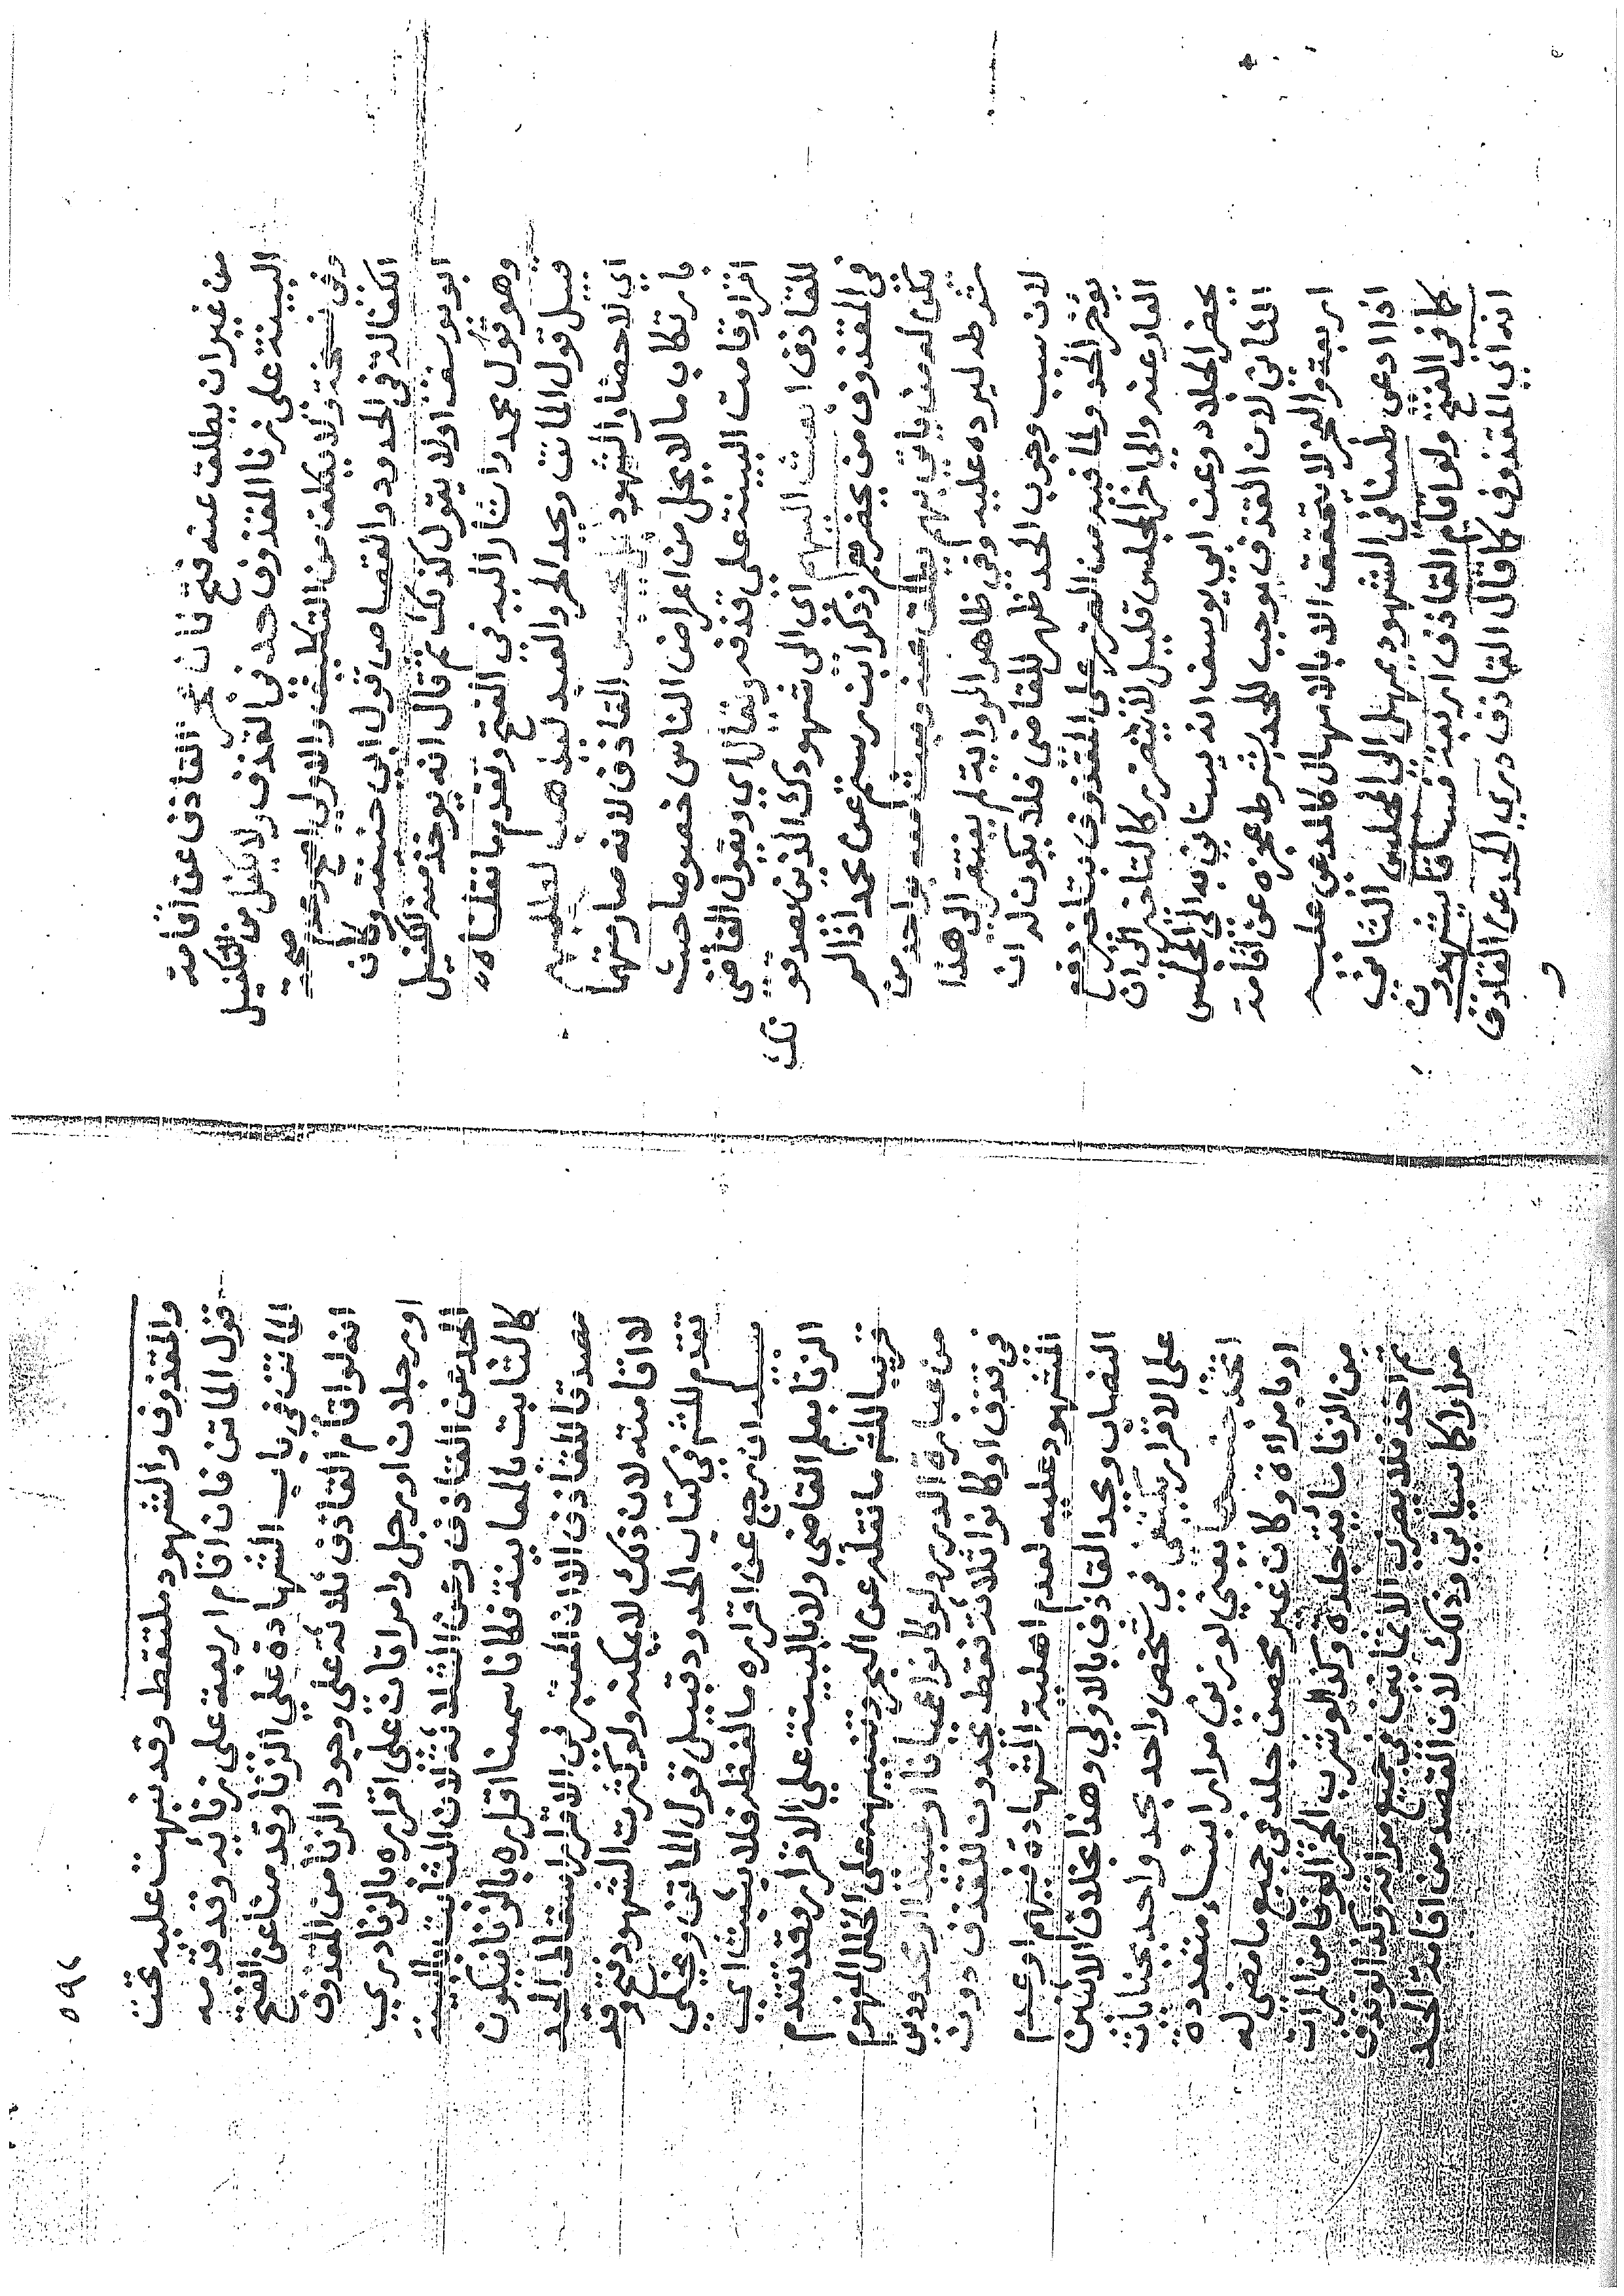 من غيران يطلق عنه فتح فان عجز القاذف عن اقامة
البينة على زنا المقذوف حد في القذف ولا يكفل من التكفيل
وفي نسخة ولا يكلف من التكليف والاولي اصح وعدم صحة
الكفالة في الحدود والقصاص قول ابي حنيفة وكان
ابو يوسف اولا يقول كذلك ثم قال انه يوخذ منه الكفيل
وهو قول محمد واشار اليه في الفتح وتقدم ما نقلناه
قبيل قول الماتن ويحد الحر والعبد
اي لاحضار الشهود بل يحبس القاذف لانه صار متهما
بارتكاب ما لا يحل من اعراض الناس خصوصا حيث
اقر او قامت البينة على قذفه ويقال اي ويقول القاضي
للقاذف ابعث اليهم اي الي شهودك الذين
في المقذوف من يحضرهم وذكر ابن رستم عن محمد اذا لم
يكن له من ياتي بهم يطلق عنه ويبعث معه بواحد من
شرطه ليرده عليه وفي ظاهر الرواية لم يفتقر الى هذا
لان سبب وجوب الحد ظهر للقاضي فلا يكون له ان
يوخر الحد ولما فيه من الضرر على المقذوف بتاخير دفع
العار عنه والى اخر المجلس قليل لا يتضرر كالتاخير الى ان
يحضر الجلاد وعن ابي يوسف انه يستاني به الى المجلس
الثاني لان القذف موجب للحد بشرط عجزه عن اقامة
اربعة والعجز لا يتحقق الا بالامهال كالمدعي عليه
اذا ادعى طعنا في الشهود يمهل الى المجلس الثاني
كما في الفتح ولو اقام القاذف اربعة فساقا يشهدون
انه اي المقذوف كما قال القاذف دري الحد عن القاذف
و
٥٩٤
والمقذوف والشهود ملتقط وقد نبهت عليه تحت
قول الماتن فان اقام اربعة على زنائه وقد قدمه
الماتن في باب الشهادة على الزنا وقدمنا عن الفتح
انه لو اقام القاذف ثلاثة على وجود الزنا من المقذوف
او رجلان او رجل وامراتان على اقراره بالزنا دري
الحد عن القاذف وعن الثلاثة لان الثابت بالبينة
كالثابت بالمعاينة فكانا سمعنا اقراره بالزنا فيكون
مصدقا للقاذف الا ان المعتبر في الاقرار اسقاط الحد
لا اقامته لان ذلك لا يمكنه ولو كثرت الشهود فتح وقد
تقدم للشم في كتاب الحدود قبيل قول الماتن ويخلي
سبيله ان رجع عن اقراره ما لفظه فلا يثبت اي
الزنا بعلم القاضي ولا بالبينة على الاقرار وقد تقدم
قريبا للشم ما نقله عن البحر وتنبيهه على الخلل المفهوم
من عبارة الدرر ولو كانوا عميانا او عبيدا او محدودين
في قذف او كانوا ثلاثة فقط يحدون للقذف دون
المشهود عليه لعدم اهلية الشهادة فيهم او عدم
النصاب ويحد القاذف بالاولى وهذا بخلاف الاثنين
على الاقرار يكتفي في شخص واحد بحد واحد بجنايات
اتحد جنسها يعني لو زنى مرارا بنساء متعددة
او بامراة وكان غير محصن جلد في جميع ما مضى له
من الزنا مائة جلدة وكذا لو شرب الخمر الوفا من المرات
ثم اخذ فلا يضرب الا ثمانين في جميع مراته وكذا لو قذف
مرارا كما سياتي وذلك لان القصد من اقامة الحد